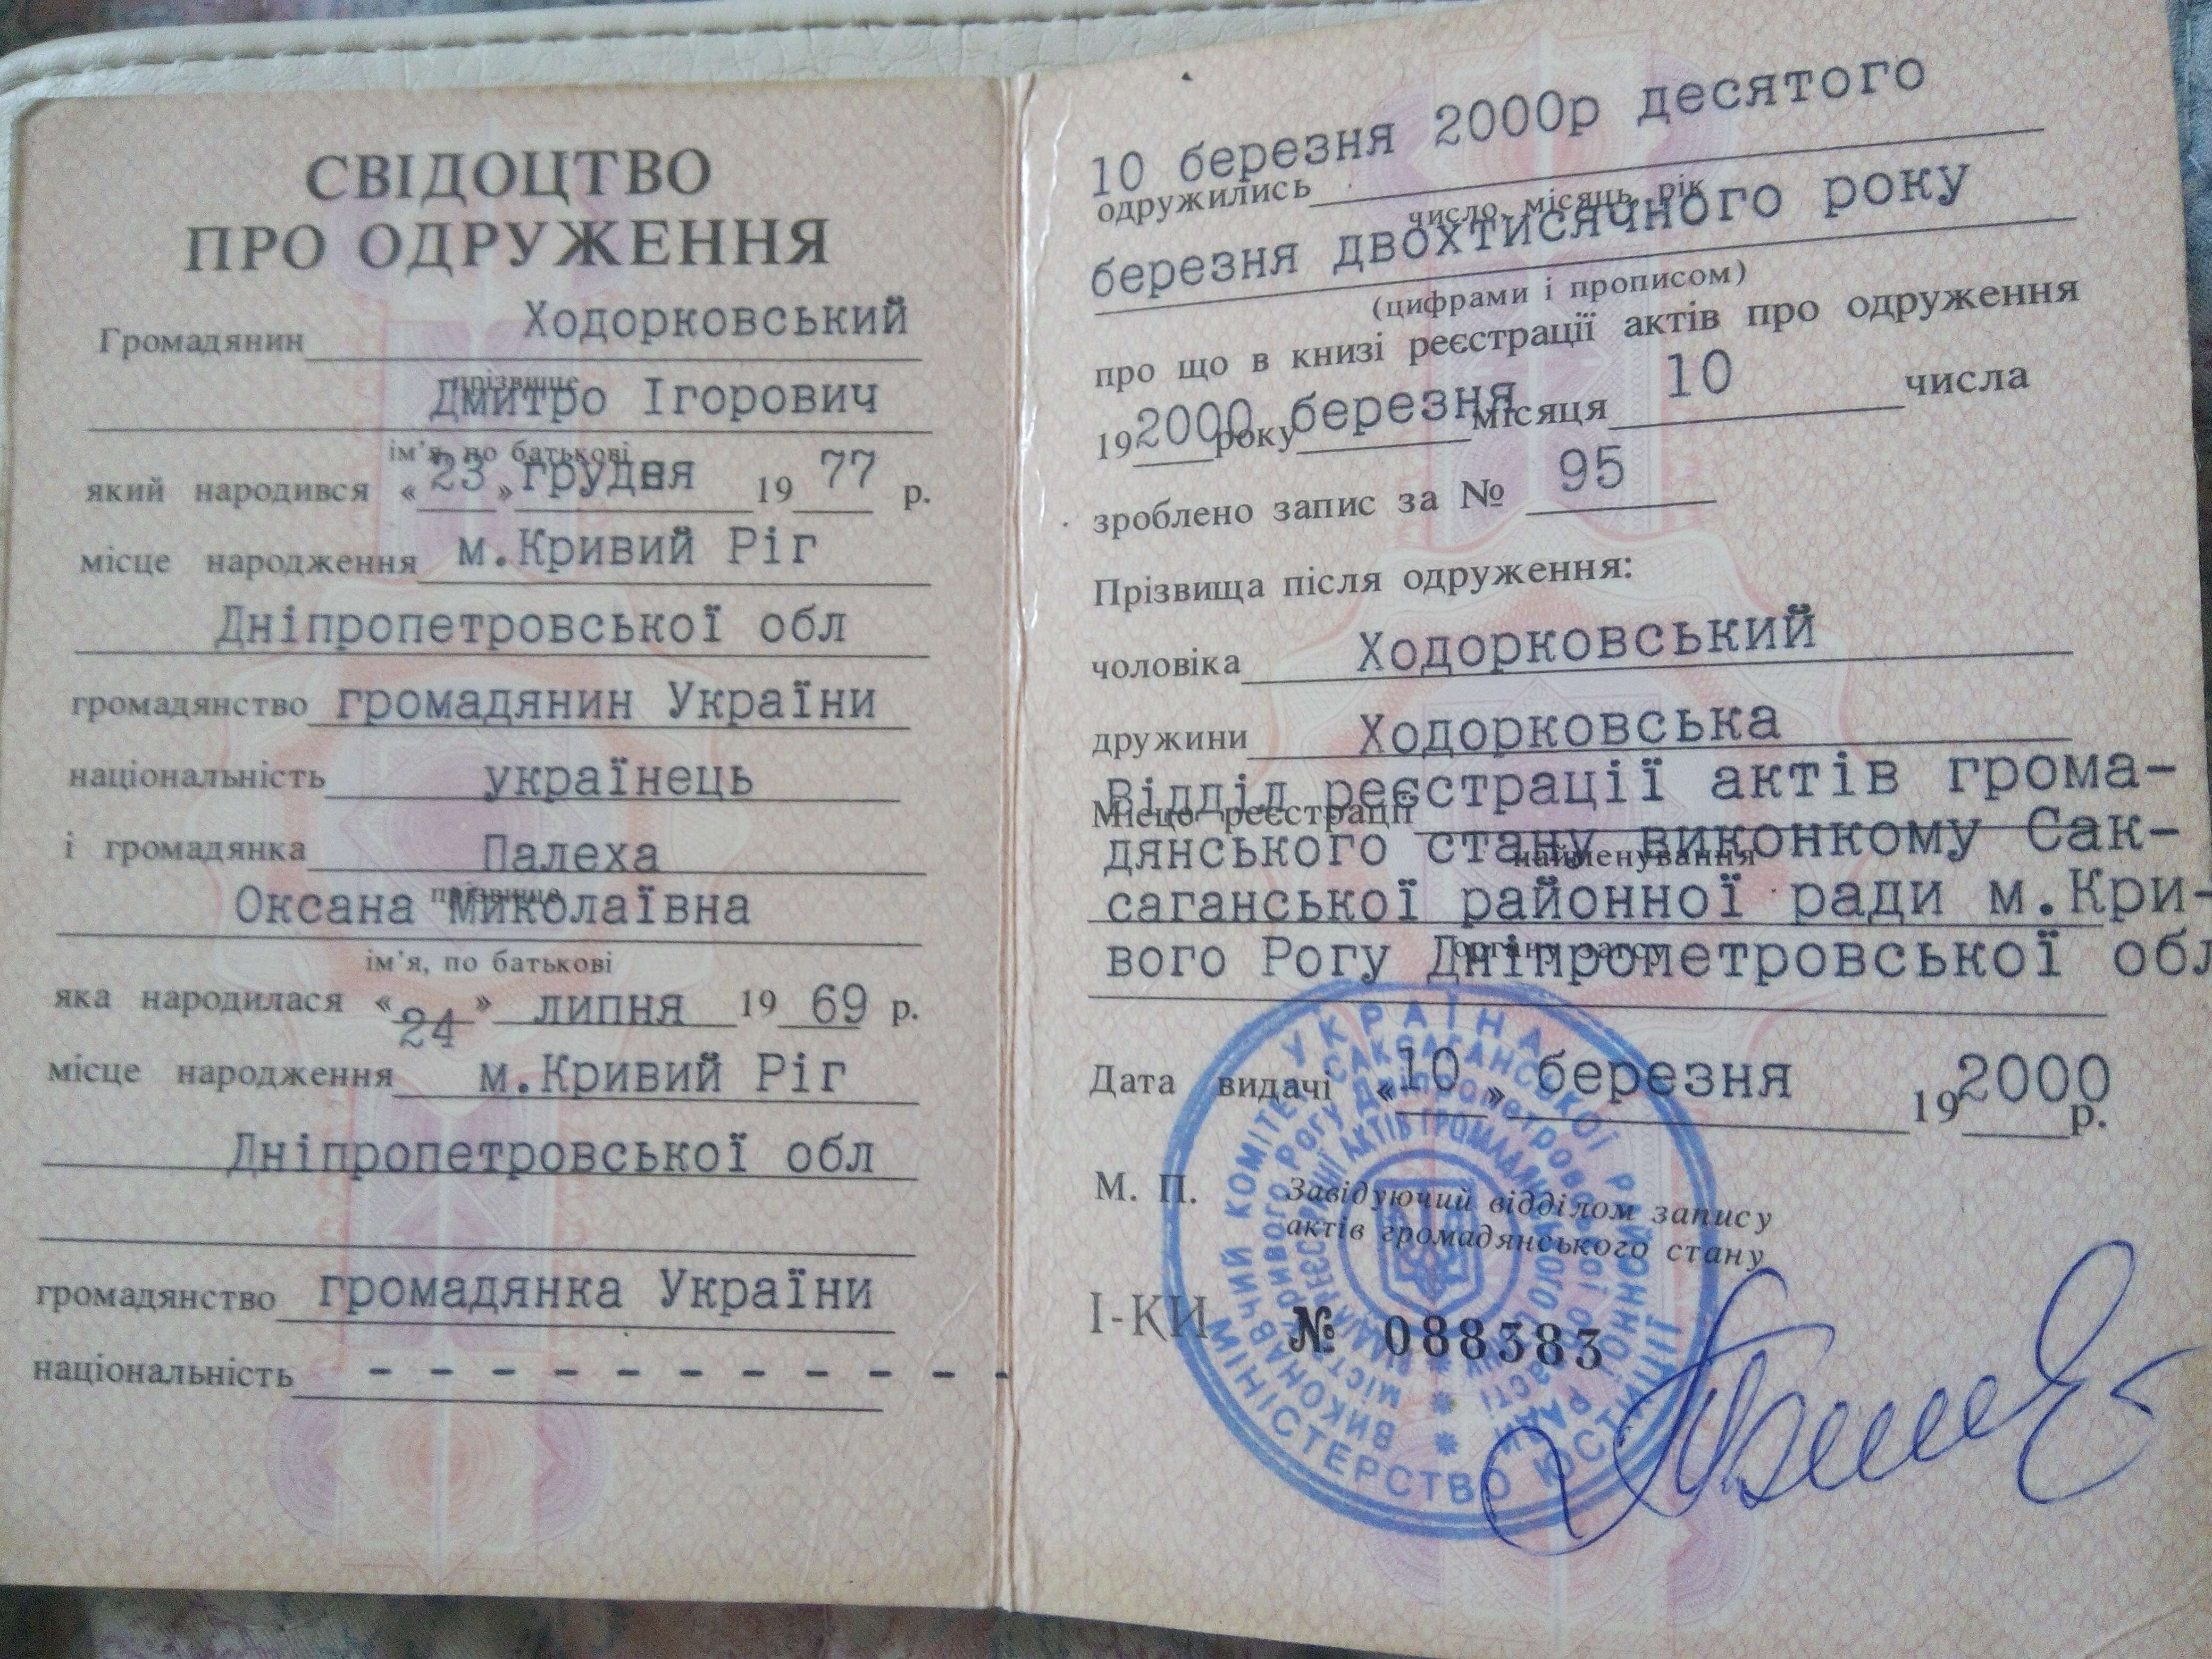 СВІДОЦТВО
ПРО ОДРУЖЕННЯ
Громадянин Ходорковський
прізвище
Дмитро Ігорович
ім'я, по батькові
який народився « 23 » грудня 19 77 р.
місце народження м.Кривий Ріг
Дніпропетровської обл
громадянство громадянин України
національність українець
і громадянка Палеха
прізвище
Оксана Миколаївна
ім'я, по батькові
яка народилася « 24 » липня 19 69 р.
місце народження м.Кривий Ріг
Дніпропетровської обл
громадянство громадянка України
національність - - - - - - - - - - - -
10 березня 2000р десятого
одружились
число, місяць, рік
березня двохтисячного року
(цифрами і прописом)
про що в книзі реєстрації актів про одруження
19 2000 року березня місяця 10 числа
зроблено запис за № 95
Прізвища після одруження:
чоловіка Ходорковський
дружини Ходорковська
Відділ реєстрації актів грома-
Місце реєстрації
дянського стану виконкому Сак-
найменування
саганської районної ради м.Кри-
вого Рогу Дніпропетровської обл
органу загсу
Дата видачі « 10 » березня 19 2000 р.
М. П. Завідуючий відділом запису
актів громадянського стану
І-КИ № 088383
УКРАЇНА
МІНІСТЕРСТВО ЮСТИЦІЇ
ВИКОНАВЧИЙ КОМІТЕТ САКСАГАНСЬКОЇ РАЙОННОЇ РАДИ